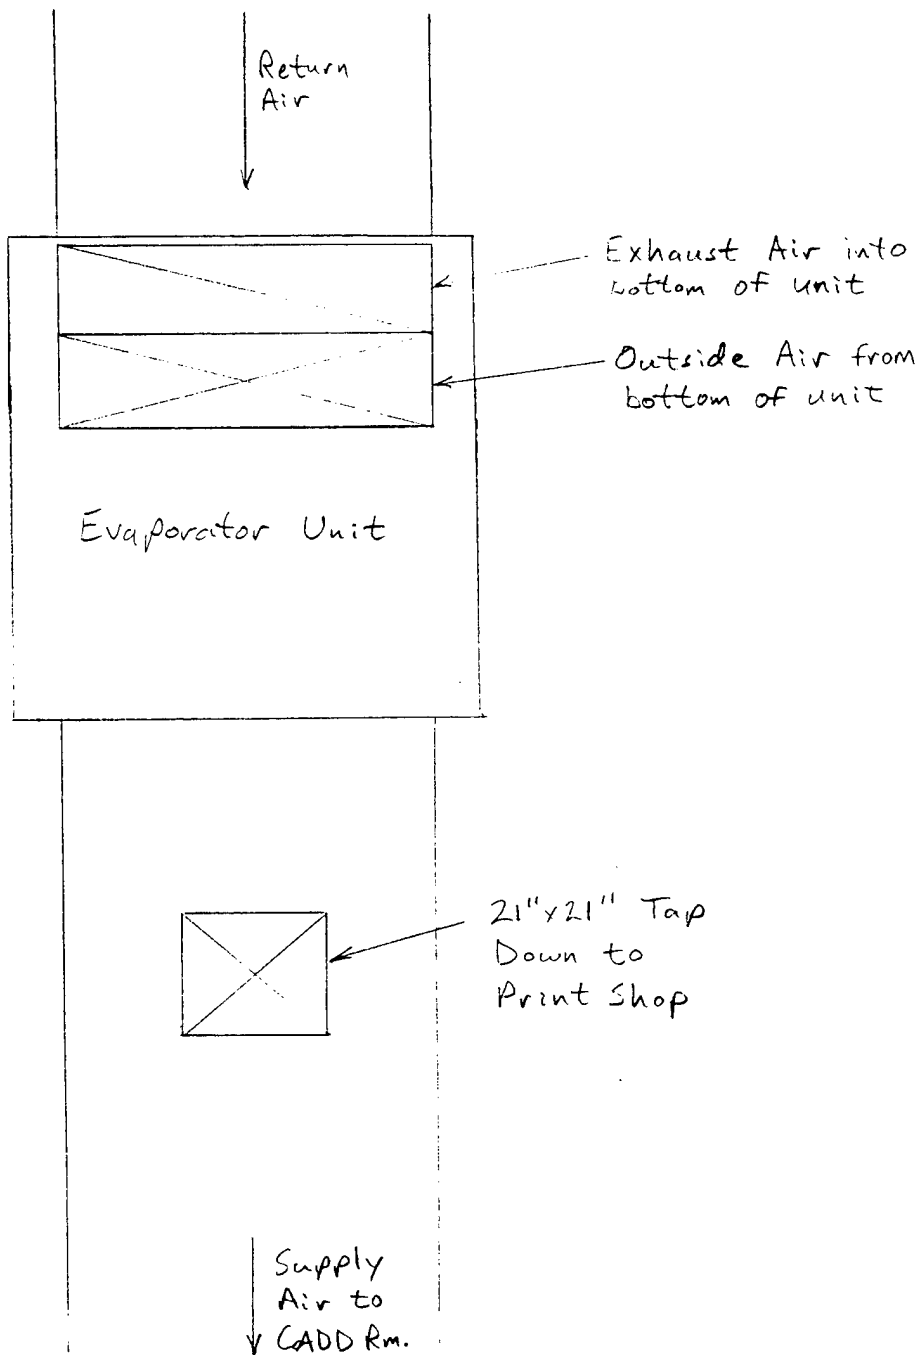 Return
Air
Exhaust Air into
bottom of unit
Outside Air from
bottom of unit
Evaporator Unit
21"x21" Tap
Down to
Print Shop
Supply
Air to
CADD Rm.